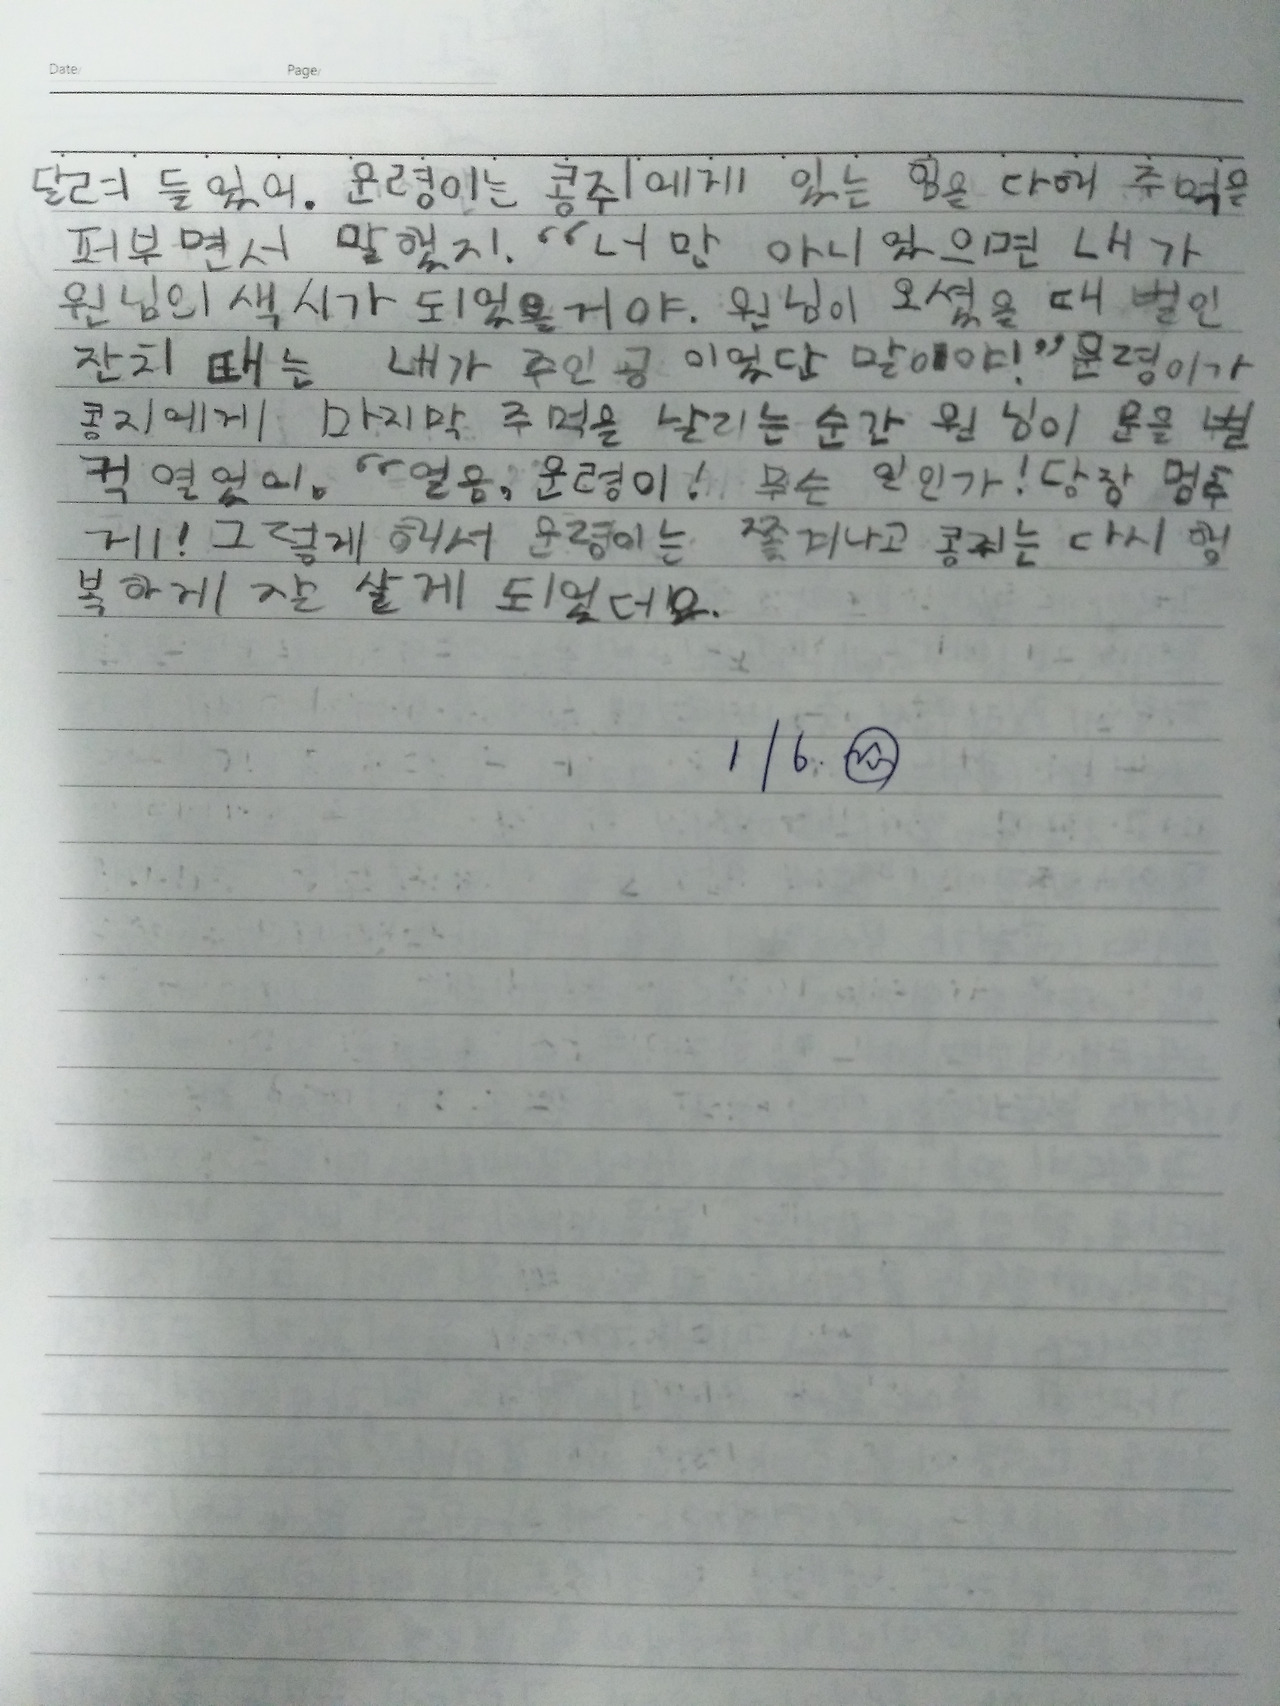 Date/ Page/
달려 들었어. 운령이는 콩쥐에게 있는 힘을 다해 주먹을
퍼부면서 말했지. "너만 아니었으면 내가
원님의 색시가 되었을거야. 원님이 오셨을 때 벌인
잔치 때는 내가 주인공 이었단 말이야!" 운령이가
콩지에게 마지막 주먹을 날리는 순간 원님이 문을 벌
컥 열었어. "얼음, 운령이! 무슨 일인가! 당장 멈추
게! 그렇게 해서 운령이는 쫓겨나고 콩쥐는 다시 행
복하게 잘 살게 되었데요.
1/6.